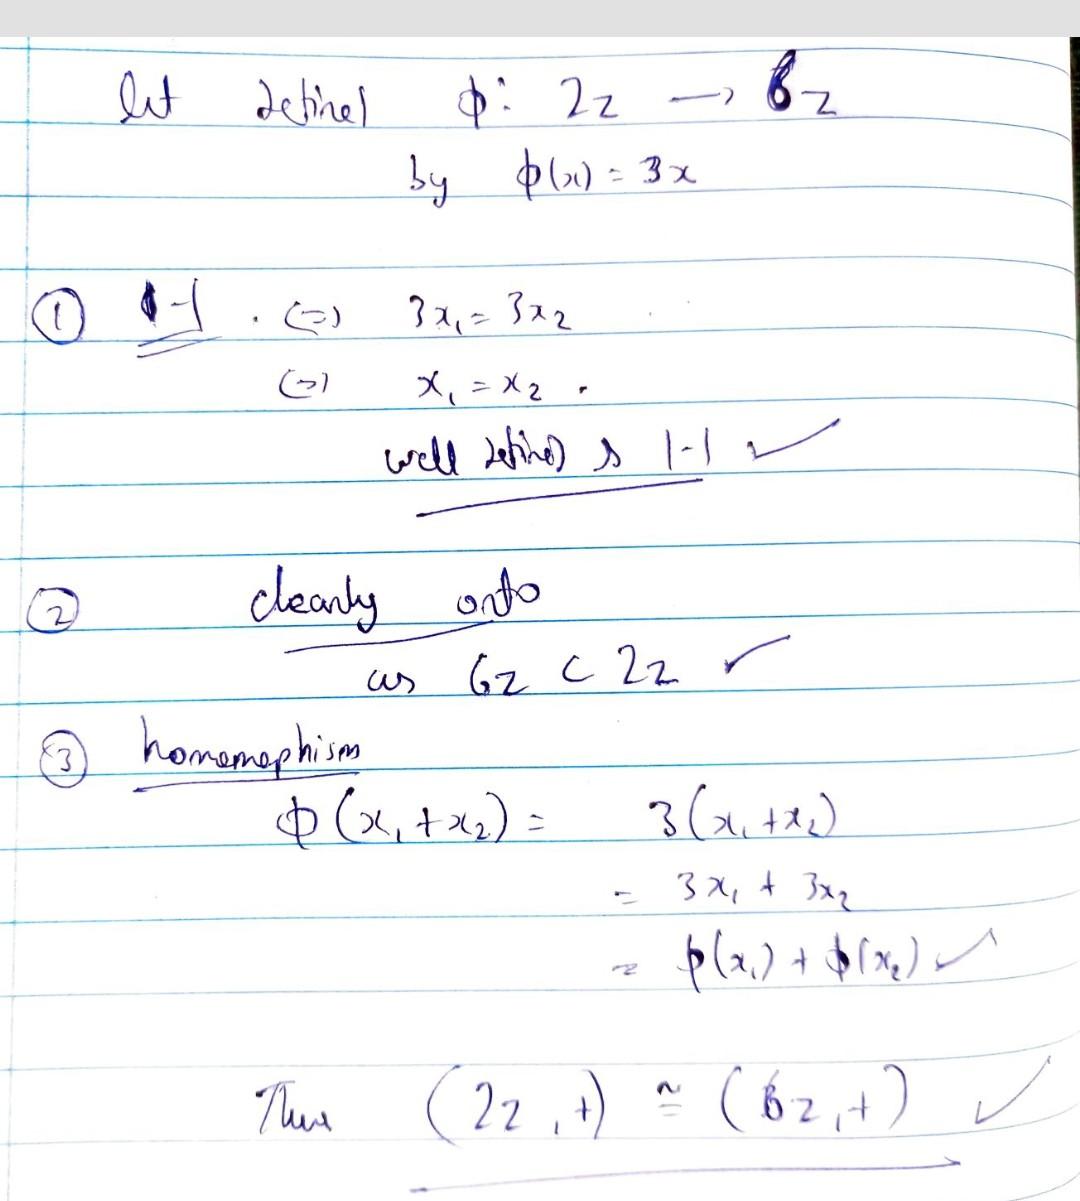 let define ϕ: 2z → 6z
by ϕ(x) = 3x
① 1-1 . (=) 3x₁ = 3x₂
(=) x₁ = x₂ .
well defined & 1-1 ✓
② clearly onto
as 6z ⊂ 2z ✓
③ homomophism
ϕ(x₁ + x₂) = 3(x₁ + x₂)
= 3x₁ + 3x₂
= ϕ(x₁) + ϕ(x₂) ✓
Thus (2z, +) ≅ (6z, +) ✓